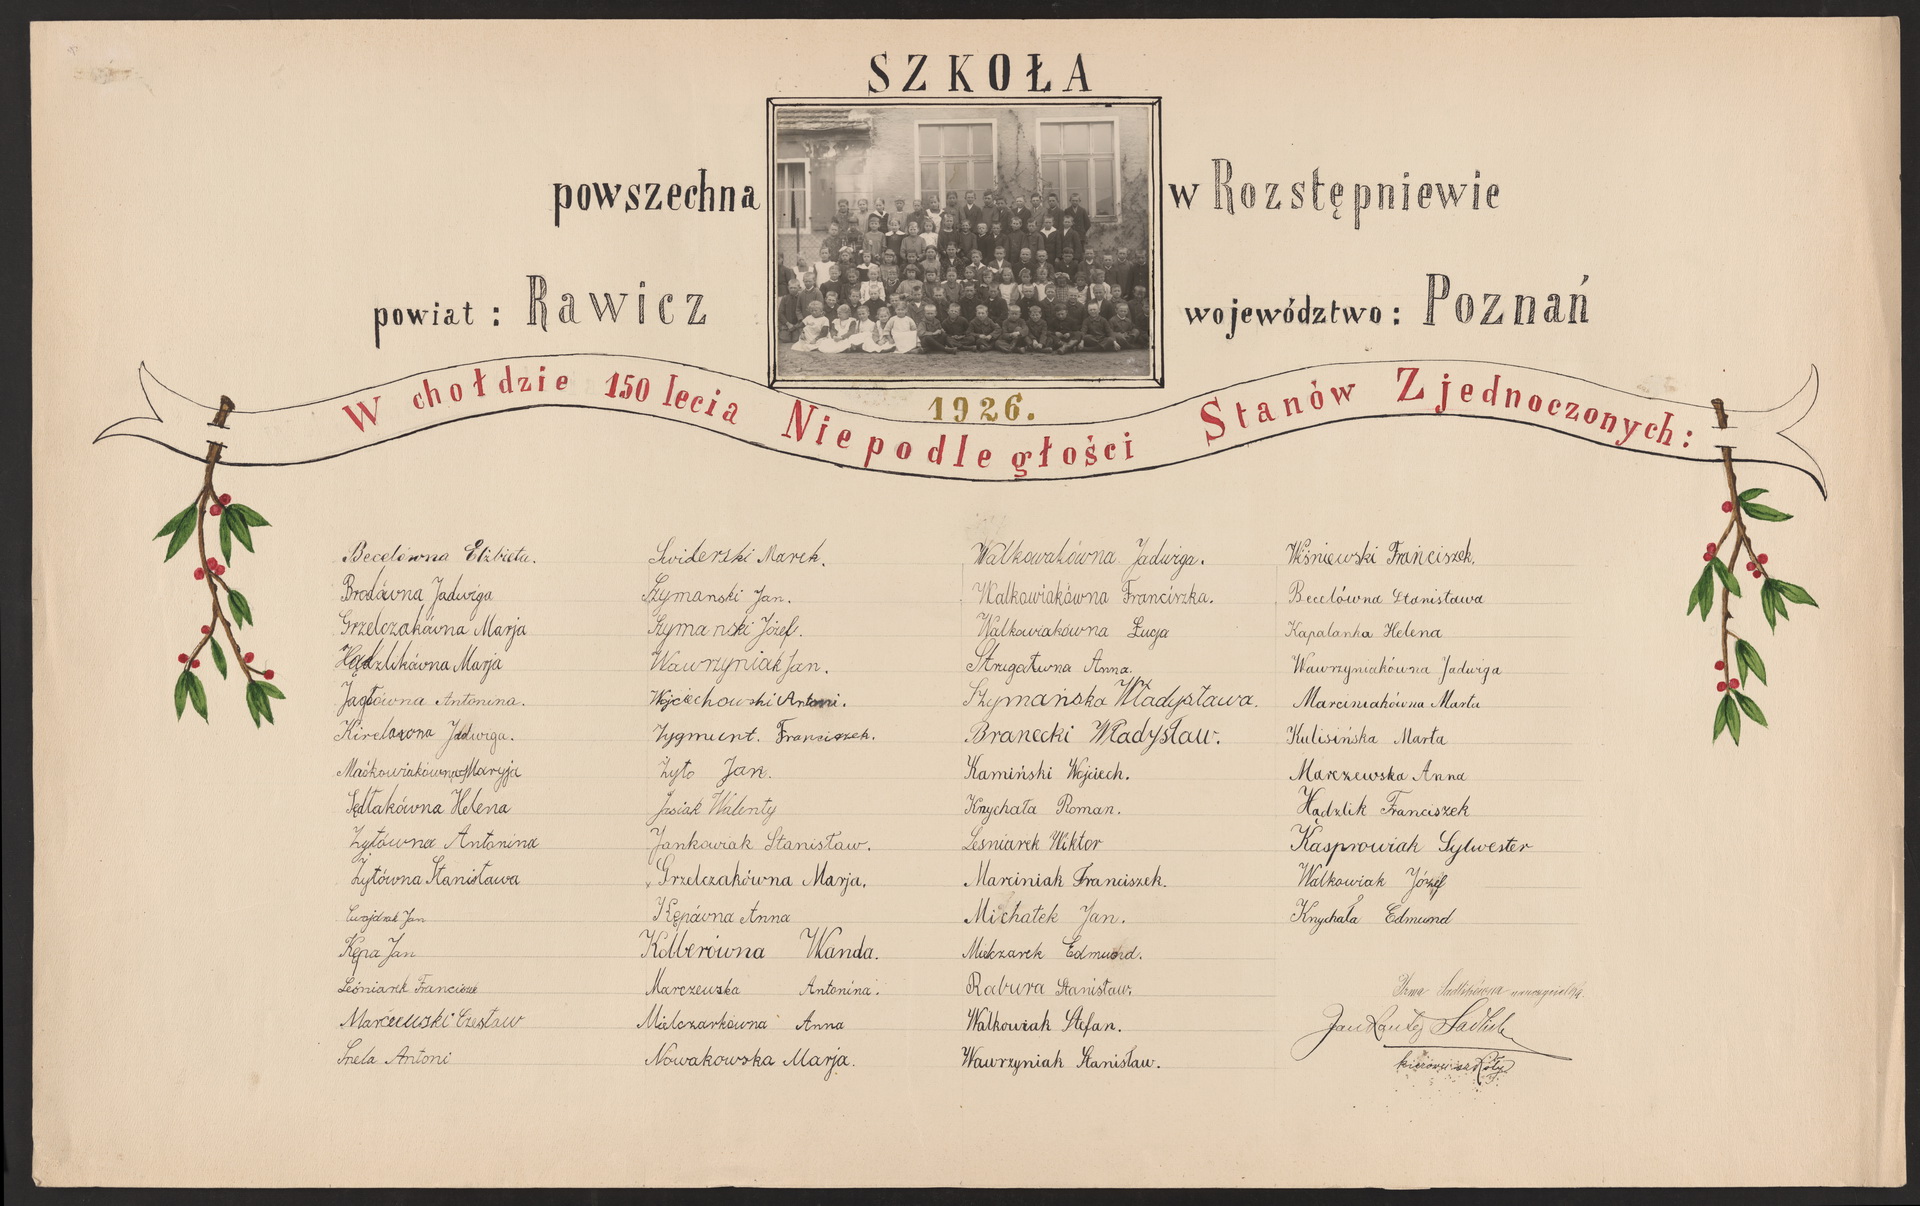 SZKOŁA
powszechna w Rozstępniewie
powiat: Rawicz województwo: Poznań
1926.
W chołdzie 150 lecia Niepodległości Stanów Zjednoczonych:
Becelówna Elżbieta.
Brodówna Jadwiga
Grzelczakówna Marja
Hądzlikówna Marja
Jagłówna Antonina.
Jadwiga.
Maćkowiakówna Maryja
Sędłakówna Helena
Żytówna Antonina
Żytówna Stanisława
Jan
Kępa Jan
Leśniarek
Marcewski Czesław
Snela Antoni
Swiderski Marek.
Szymanski Jan.
Szymański Józef.
Wawrzyniak Jan.
Wojciechowski Antoni.
Zygmunt. Franciszek.
Żyto Jan.
Jasiak Walenty
Jankowiak Stanisław.
Grzelczakówna Marja.
Kępówna Anna
Kolberówna Wanda.
Marczewska Antonina.
Mielczarkówna Anna
Nowakowska Marja.
Walkowiakówna Jadwiga.
Walkowiakówna Franciszka.
Walkowiakówna Łucja
Anna.
Szymańska Władysława.
Branecki Władysław.
Kamiński Wojciech.
Knychała Roman.
Leśniarek Wiktor
Marciniak Franciszek.
Michałek Jan.
Edmund.
Rabura Stanisław.
Walkowiak Stefan.
Wawrzyniak Stanisław.
Wiśniewski Franciszek.
Becelówna Stanisława
Kapalanka Helena
Wawrzyniakówna Jadwiga
Marciniakówna Marta
Kulisińska Marta
Marczewska Anna
Hądzlik Franciszek
Kasprowiak Sylwester
Walkowiak Józef
Knychała Edmund
nauczycielka.
Jan Kanty